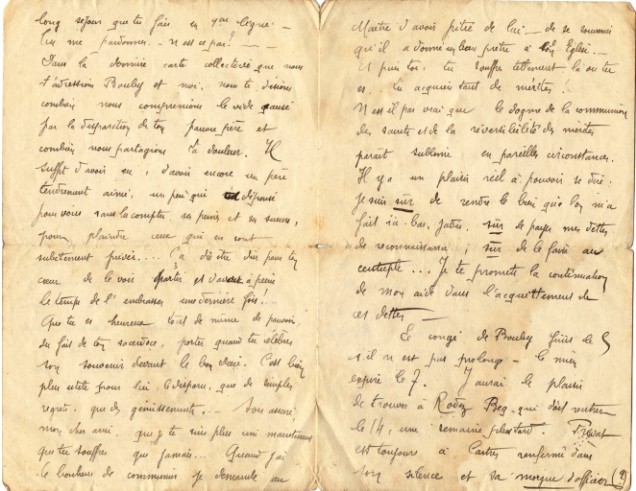 long séjour que tu fais en
Tu me pardonnes - n'est ce pas? -
Dans la dernière carte collective que nous
t'adressions Bouby et moi, nous te disions
combien nous comprenions le vide causé
par la disparition de ton pauvre père et
combien nous partagions ta douleur. Il
suffit d'avoir eu, d'avoir encore un père
tendrement aimé, un père qui dépensé
pour vous sans la compter sa peine et sa sueur,
pour plaindre ceux qui en sont
subitement privés... Ça a dû être dur pour ton
cœur de le voir partir et d'avoir à peine
le temps de l'embrasser une dernière fois...
Que tu es heureux tout de même de pouvoir,
du fait de ton sacerdoce, porter quand tu célèbres
son souvenir devant le bon Dieu. C'est bien
plus utile pour lui, le disparu, que de simples
regrets, que des gémissements... Sois assuré
mon cher ami, que je te suis plus uni maintenant
que tu souffres que jamais... Quand j'ai
le bonheur de communier je demande au
Maître d'avoir pitié de lui - de se souvenir
qu'il a donné un bon prêtre à son Eglise. -
Et puis toi, tu souffres tellement là où tu
es, tu acquiers tant de mérites!
N'est il pas vrai que le dogme de la communion
des saints et de la réversibilité des mérites
paraît sublime en pareilles circonstances.
Il y a un plaisir réel à pouvoir se dire:
Je suis sûr de rendre le bien que l'on m'a
fait ici-bas, sûr de payer mes dettes
de reconnaissance, sûr de le faire au
centuple... Je te promets la continuation
de mon aide dans l'acquittement de
ces dettes -
Le congé de Bouby finit le 5
s'il n'est pas prolongé - le mien
expire le 7. J'aurai le plaisir
de trouver à Rodez Beg. qui doit rentrer
le 14, une semaine plus tard.
est toujours à Castres renfermé dans
son silence et sa morgue d'officier (?)